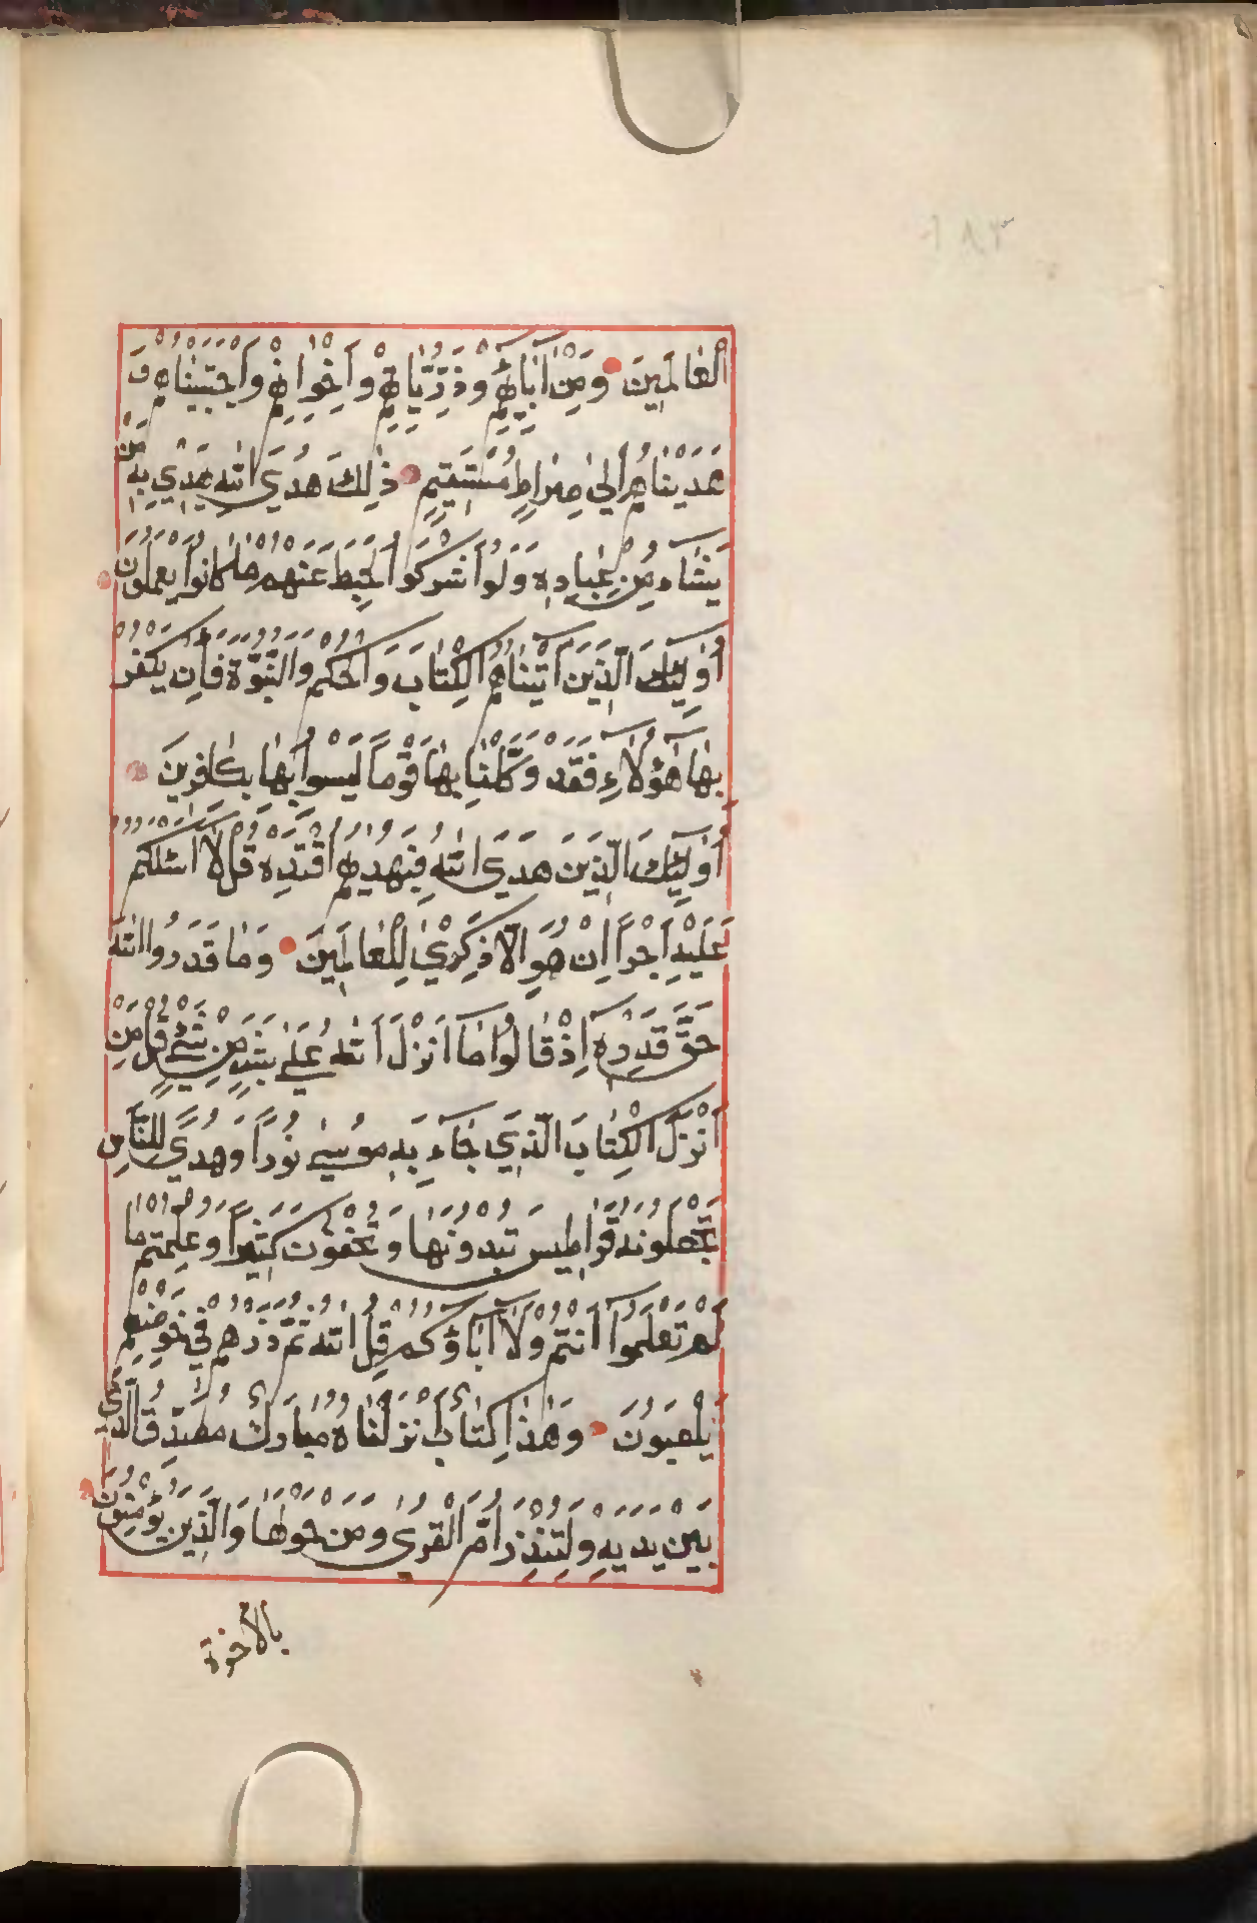 ٱلْعَالَمِينَ وَمِنْ اٰبَائِهِمْ وَذُرِّيَّاتِهِمْ وَاِخْوَانِهِمْ وَاجْتَبَيْنَاهُمْ وَ
هَدَيْنَاهُمْ اِلَىٰ صِرَاطٍ مُسْتَقِيمٍ ذٰلِكَ هُدَي اللهِ يَهْدِي بِهِ مَنْ
يَشَاءُ مِنْ عِبَادِهِ وَلَوْ اَشْرَكُوا لَحَبِطَ عَنْهُمْ مَا كَانُوا يَعْمَلُونَ
أُولٰئِكَ الَّذِينَ اٰتَيْنَاهُمُ الْكِتَابَ وَالْحُكْمَ وَالنُّبُوَّةَ فَاِنْ يَكْفُرْ
بِهَا هٰؤُلَاءِ فَقَدْ وَكَّلْنَا بِهَا قَوْماً لَيْسُوا بِهَا بِكَافِرِينَ
أُولٰئِكَ الَّذِينَ هَدَي اللهُ فَبِهُدٰيهُمُ اقْتَدِهْ قُلْ لَا اَسْئَلُكُمْ
عَلَيْهِ اَجْراً اِنْ هُوَ اِلَّا ذِكْرٰي لِلْعَالَمِينَ وَمَا قَدَرُوا اللهَ
حَقَّ قَدْرِهِ اِذْ قَالُوا مَا اَنْزَلَ اللهُ عَلَىٰ بَشَرٍ مِنْ شَيْءٍ قُلْ مَنْ
اَنْزَلَ الْكِتَابَ الَّذِي جَاءَ بِهِ مُوسٰي نُوراً وَهُدًي لِلنَّاسِ
تَجْعَلُونَهُ قَرَاطِيسَ تُبْدُونَهَا وَتُخْفُونَ كَثِيراً وَعُلِّمْتُمْ مَا
لَمْ تَعْلَمُوا اَنْتُمْ وَلَا اٰبَاؤُكُمْ قُلِ اللهُ ثُمَّ ذَرْهُمْ فِي خَوْضِهِمْ
يَلْعَبُونَ وَهٰذَا كِتَابٌ اَنْزَلْنَاهُ مُبَارَكٌ مُصَدِّقُ الَّذِي
بَيْنَ يَدَيْهِ وَلِتُنْذِرَ اُمَّ الْقُرٰي وَمَنْ حَوْلَهَا وَالَّذِينَ يُؤْمِنُونَ
بالأخرة